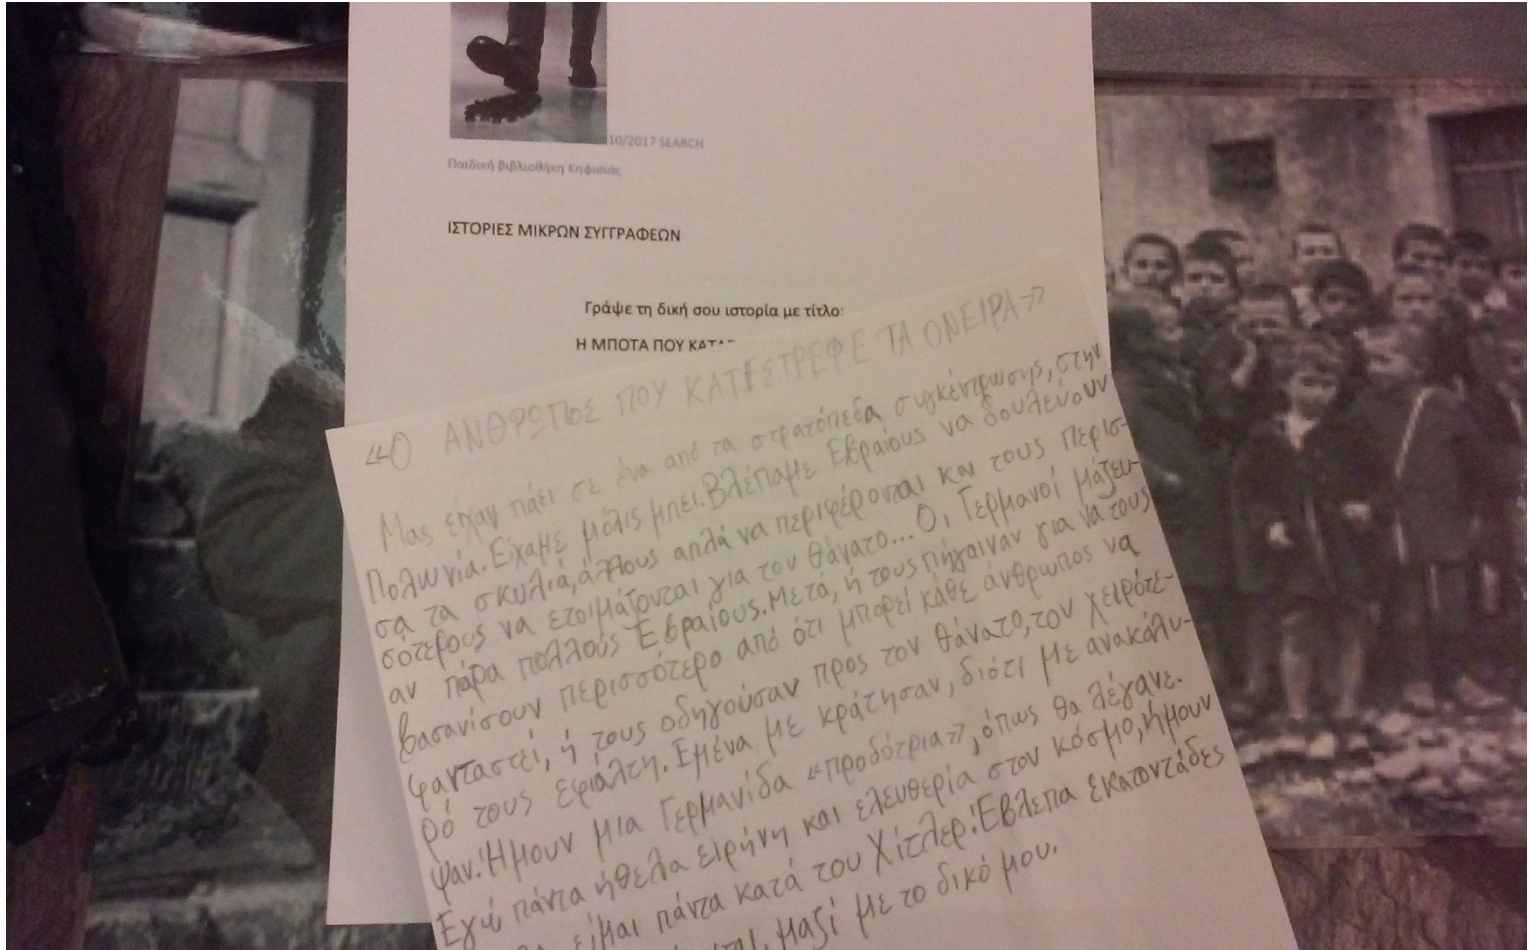 10/2017 SEARCH
Παιδική βιβλιοθήκη Κηφισιάς
ΙΣΤΟΡΙΕΣ ΜΙΚΡΩΝ ΣΥΓΓΡΑΦΕΩΝ
Γράψε τη δική σου ιστορία με τίτλο:
Η ΜΠΟΤΑ ΠΟΥ
«Ο ΑΝΘΡΩΠΟΣ ΠΟΥ ΚΑΤΕΣΤΡΕΦΕ ΤΑ ΟΝΕΙΡΑ»
Μας είχαν πάει σε ένα από τα στρατόπεδα συγκέντρωσης, στην
Πολωνία. Είχαμε μόλις μπει. Βλέπαμε Εβραίους να δουλεύουν
σα τα σκυλιά, άλλους απλά να περιφέρονται και τους περισ-
σότερους να ετοιμάζονται για τον θάνατο... Οι Γερμανοί μάζευ-
αν πάρα πολλούς Εβραίους. Μετά, ή τους πήγαιναν για να τους
βασανίσουν περισσότερο από ότι μπορεί κάθε άνθρωπος να
φανταστεί, ή τους οδηγούσαν προς τον θάνατο, τον χειρότε-
ρό τους εφιάλτη. Εμένα με κράτησαν, διότι με ανακάλυ-
ψαν. Ήμουν μια Γερμανίδα «προδότρια», όπως θα λέγανε.
Εγώ πάντα ήθελα ειρήνη και ελευθερία στον κόσμο, ήμουν
είμαι πάντα κατά του Χίτλερ! Έβλεπα εκατοντάδες
μαζί με το δικό μου.